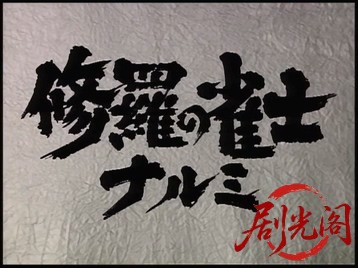 修羅の雀士
ナルミ
剧光阁